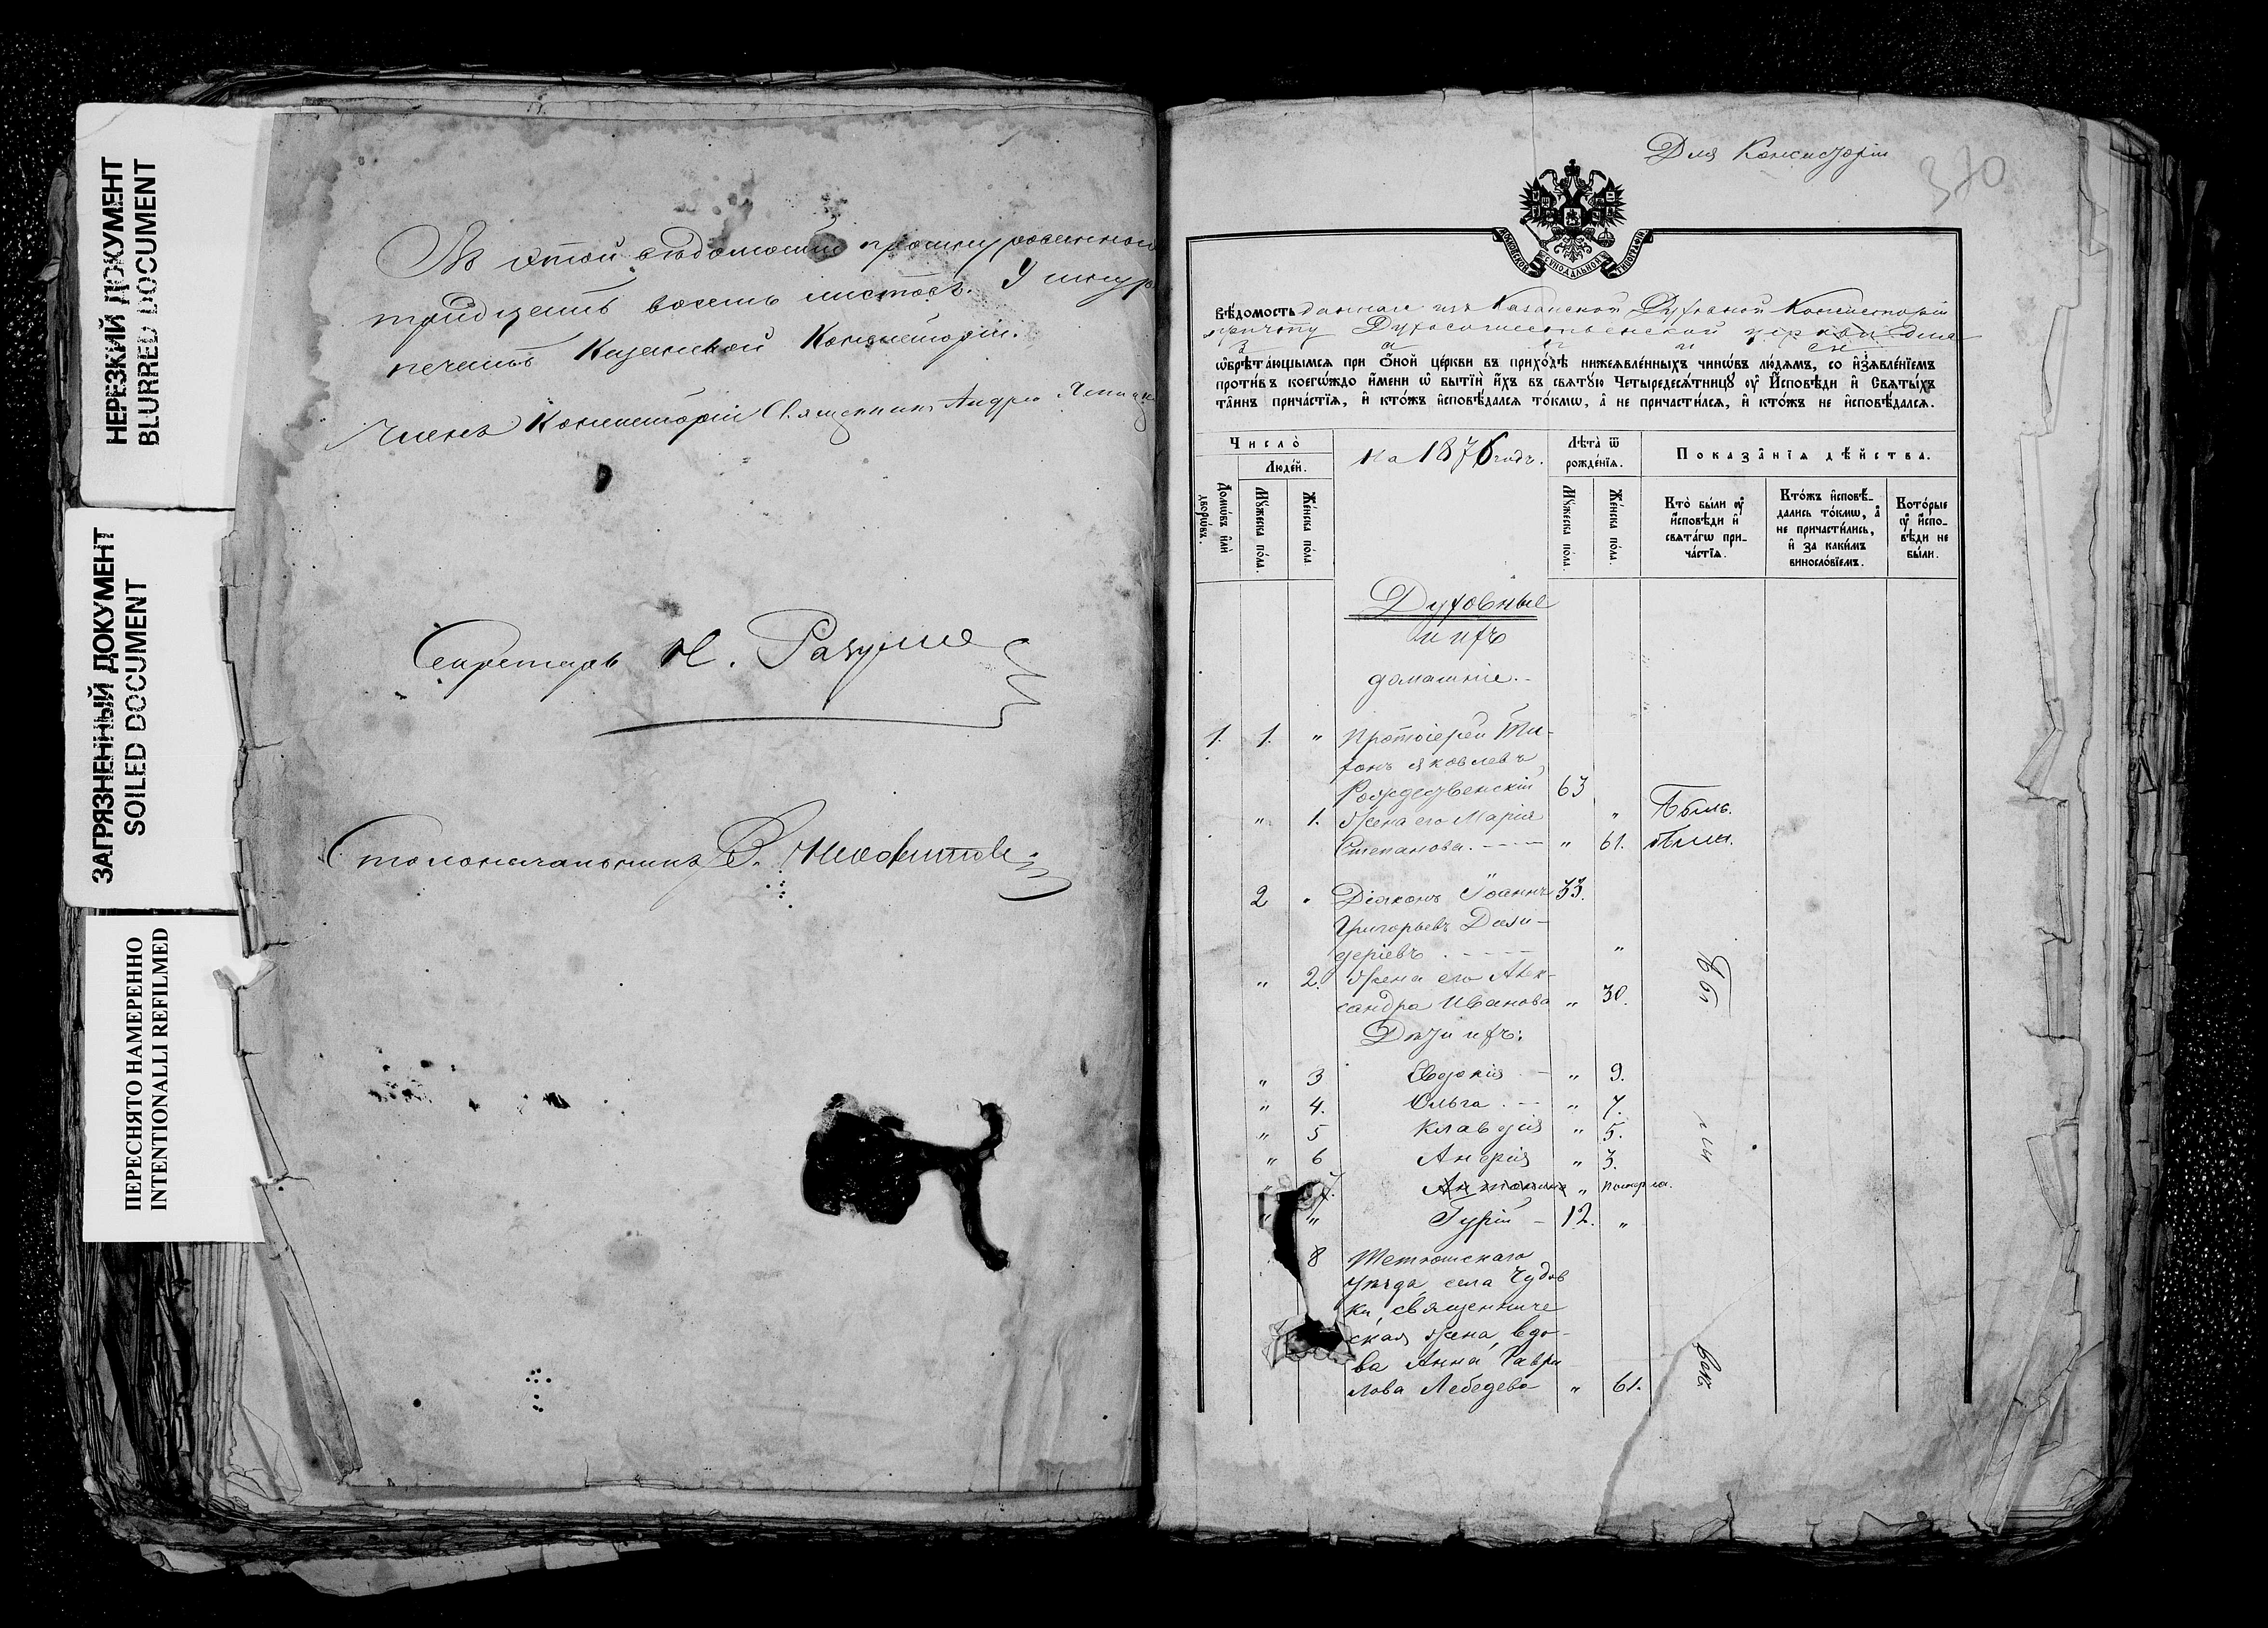 НЕРЕЗКИЙ ДОКУМЕНТ
BLURRED DOCUMENT
ЗАГРЯЗНЕННЫЙ ДОКУМЕНТ
SOILED DOCUMENT
ПЕРЕСНЯТО НАМЕРЕННО
INTENTIONALLI REFILMED
Въ этой ведомости прошнурованной
тридцать восемь листовъ. У шнур
печать Казанской Консисторіи.
Членъ Консисторіи Священникъ Андрей
Секретарь Н. Разумо
Столоначальникъ В.
Для Консисторіи
370
МОСКОВСКОЙ СѴНОДАЛЬНОЙ ТИПОГРАФІИ
Вѣдомость данная изъ Казанской Духовной Консисторіи
причту Духосошественской церкви для
ѡ҆брѣта́ющымсѧ при ѻ҆́ной це́ркви въ прихо́дѣ нижеѧвле́нныхъ чинѡ́въ лю́дѧмъ, со и҆з̾ѧвле́нїемъ
проти́въ коегѡ́ждо и҆́мени ѡ҆ бытїѝ и҆́хъ въ свѧту́ю Четыредесѧ́тницу ᲂу҆ И҆́сповѣди и҆ Свѧты́хъ
та̑инъ прича́стїѧ, и҆ кто́жъ и҆сповѣ́далсѧ то́кмѡ, а҆ не причасти́лсѧ, и҆ кто́жъ не и҆сповѣ́далсѧ.
Число̀
Люде́й.
Домѡ́въ и҆лѝ дворѡ́въ.
Му́жеска по́ла.
Же́нска по́ла.
На 1876 годъ.
Лѣ́та ѿ рожде́нїѧ.
Му́жеска по́ла.
Же́нска по́ла.
Показа̑нїѧ дѣ́йства.
Кто̀ бы́ли ᲂу҆
и҆́сповѣди и҆
свѧта́гѡ при-
ча́стїѧ.
Кто́жъ и҆сповѣ́-
дались то́кмѡ, а҆
не причасти́лись,
и҆ за каки́мъ
винносло́вїемъ.
Кото́рые
ᲂу҆ и҆́спо-
вѣди не
бы́ли.
Духовные
и ихъ
домашніе.
1. 1. " Протоіерей Ти-
хонъ Яковлевъ
Рождественскій 63 " Былъ.
" 1. Жена его Марія
Степанова. " 61. Была.
2 " Діаконъ Іоаннъ 33.
Григорьевъ Дези-
деріевъ "
" 2. Жена его Алек-
сандра Иванова " 30.
Дѣти ихъ:
" 3 Евдокія " 9.
" 4. Ольга " 7.
" 5 Клавдія " 5.
" 6 Анфія " 3.
" 7. Антонина " померла.
" " Гурій 12. "
8 Тетюшскаго
уѣзда, села Чудов
ки, священниче
ская жена, вдо-
ва Анна Гаври
лова Лебедева " 61.